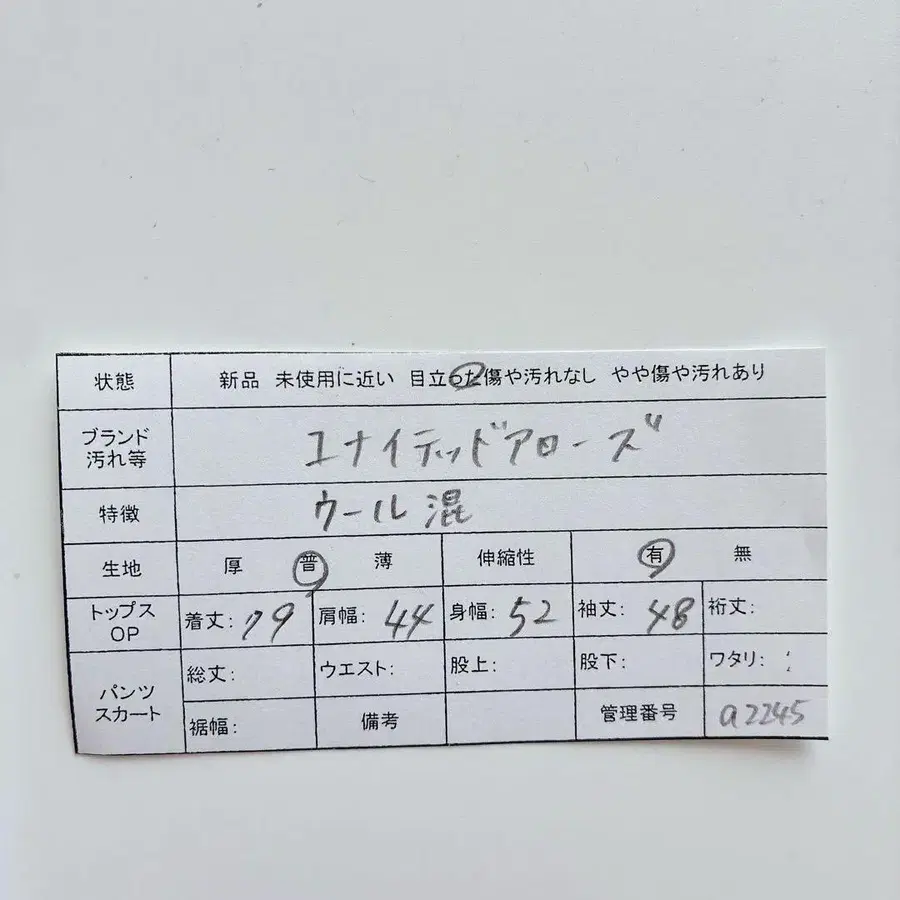 状態 新品 未使用に近い 目立った傷や汚れなし やや傷や汚れあり
ブランド 汚れ等 ユナイテッドアローズ
特徴 ウール混
生地 厚 普 薄 伸縮性 有 無
トップス OP 着丈: 79 肩幅: 44 身幅: 52 袖丈: 48 裄丈:
パンツ スカート 総丈: ウエスト: 股上: 股下: ワタリ:
裾幅: 備考 管理番号 a2245